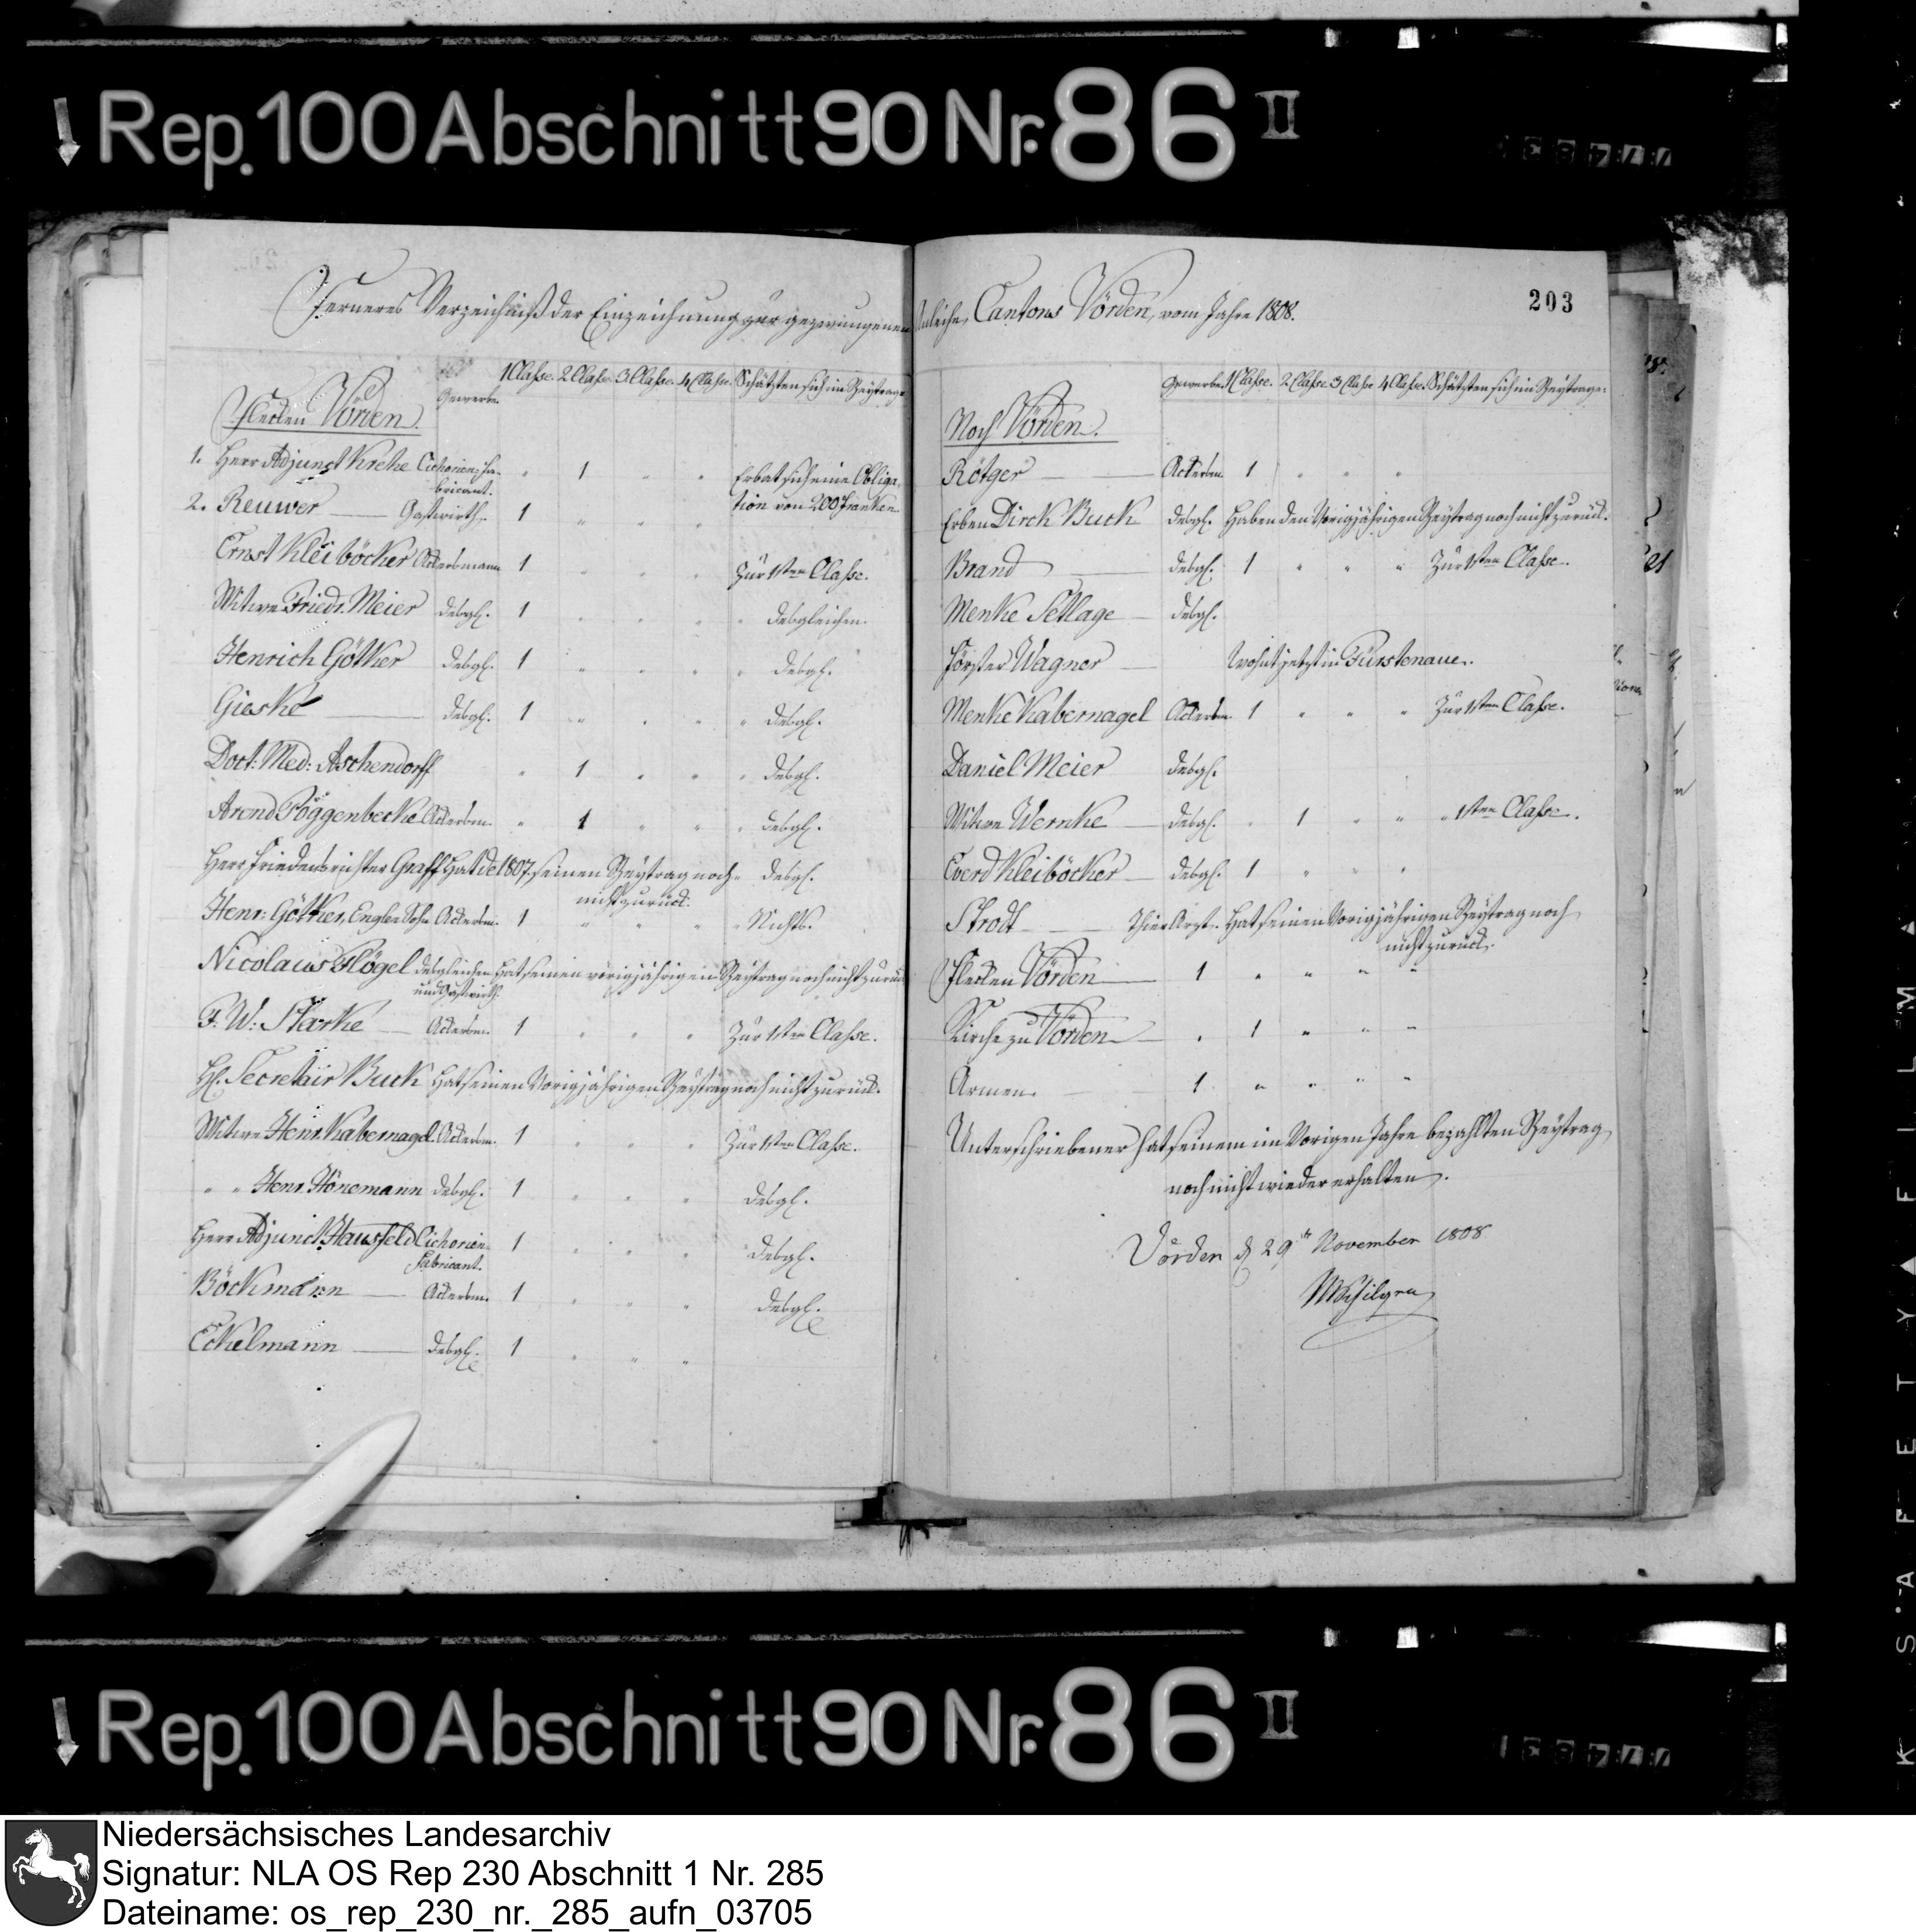 Rep. 100 Abschnitt 90 Nr. 86 II
Ferneres Verzeichniß der Einzeichnung zur gezwungenen Anleihe, Cantons Vörden, vom Jahre 1808.
203
Gewerbe. 1 Classe. 2 Classe. 3. Classe. 4 Classe. Schätzten sich im Beytrage
Flecken Vörden.
1. Herr Adjunct Krehe Cichorien-Fa- " 1 " " Erbat sich eine Obliga-
bricant. tion von 200 Franken.
2. Reuwer Gastwirth. 1 " " "
Ernst Kleiböcker Ackersmann 1 " " " Zur 1sten Classe.
Witwe Friedr. Meier desgl. 1 " " " " desgleichen.
Henrich Götker desgl. 1 " " " " desgl.
Gieske desgl. 1 " " " " desgl.
Doct: Med: Aschendorff " 1 " " " desgl.
Arend Poggenbecke Ackersm. " 1 " " " desgl.
Herr Friedensrichter Graff hat de 1807, seinen Beytrag noch " desgl.
nicht zurück.
Henr: Götker, Englen Sohn Ackersm. 1 " " " " Nichts.
Nicolaus Flögel desgleichen hat seinen vorigjährigen Beytrag noch nicht zurück
und Gastwirth.
F. W: Starke Ackersm. 1 " " " Zur 1sten Classe.
H. Secretair Buck hat seinen vorigjährigen Beytrag noch nicht zurück.
Witwe Henr. Kabernagel. Ackersm. 1 " " " Zur 1sten Classe.
" " Henr. Hönemann desgl. 1 " " " desgl.
Herr Adjunct Hausfeld Cichorien- 1 " " " desgl.
Fabricant.
Böckmann Ackersm. 1 " " " desgl.
Eckelmann desgl. 1 " " "
Gewerbe. 1 Classe. 2. Classe 3 Classe 4 Classe. Schätzten sich im Beytrage:
Noch Vörden.
Rötger Ackersm. 1 " " "
Erben Dirck Buck desgl. haben den vorigjährigen Beytrag noch nicht zurück.
Brand desgl. 1 " " " Zur 1sten Classe.
Menke Setlage desgl.
Förster Wagner wohnt jetzt in Fürstenaue.
Menke Kabernagel Ackersm. 1 " " " Zur 1sten Classe.
Daniel Meier desgl.
Witwe Wernke desgl. " 1 " " " 1sten Classe.
Everd Kleiböcker desgl. 1 " " "
Strodt Thier Arzt. hat seinen vorigjährigen Beytrag noch
nicht zurück.
Flecken Vörden 1 " " " "
Kirche zu Vörden " 1 " " "
Armen. 1 " " " "
Unterschriebener hat seinem im vorigen Jahre bezahlten Beytrag
noch nicht wieder erhalten.
Vörden d 29ten November 1808
Rep. 100 Abschnitt 90 Nr. 86 II
SAFETY FILM
Niedersächsisches Landesarchiv
Signatur: NLA OS Rep 230 Abschnitt 1 Nr. 285
Dateiname: os_rep_230_nr._285_aufn_03705